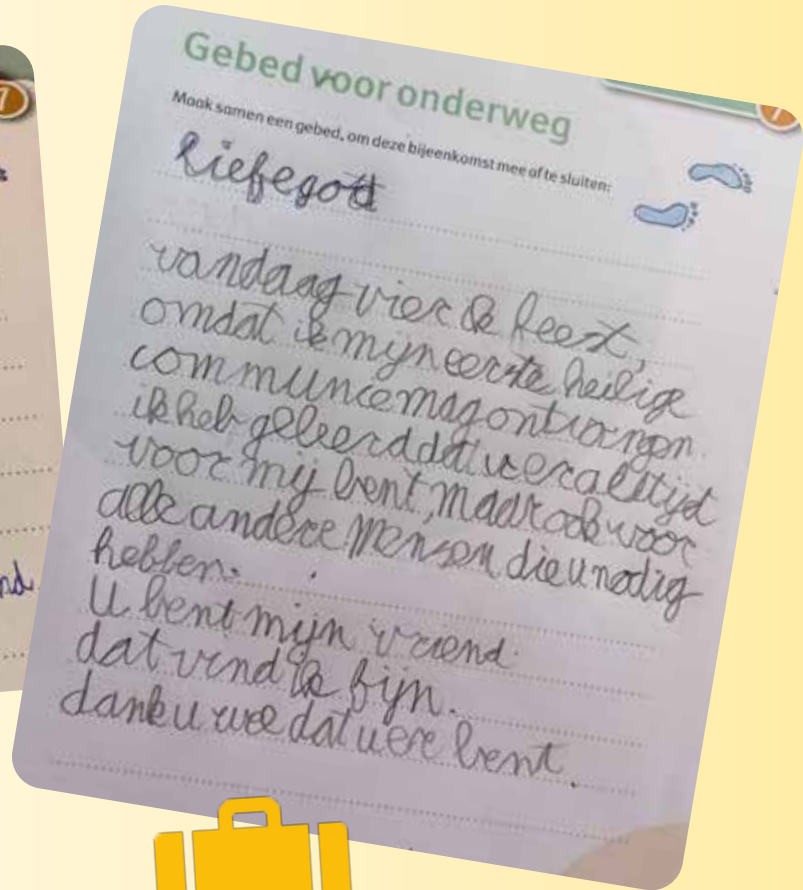 Gebed voor onderweg
Maak samen een gebed, om deze bijeenkomst mee af te sluiten:
liefegott
vandaag vier ik feest,
omdat ik mijn eerste heilige
communcemag ontvangen.
ik heb geleerd dat u er altijd
voor mij bent, maar ook voor
alle andere mensen die u nodig
hebben.
U bent mijn vriend.
dat vind ik fijn.
dank u wee dat u ere bent.
7
nd.